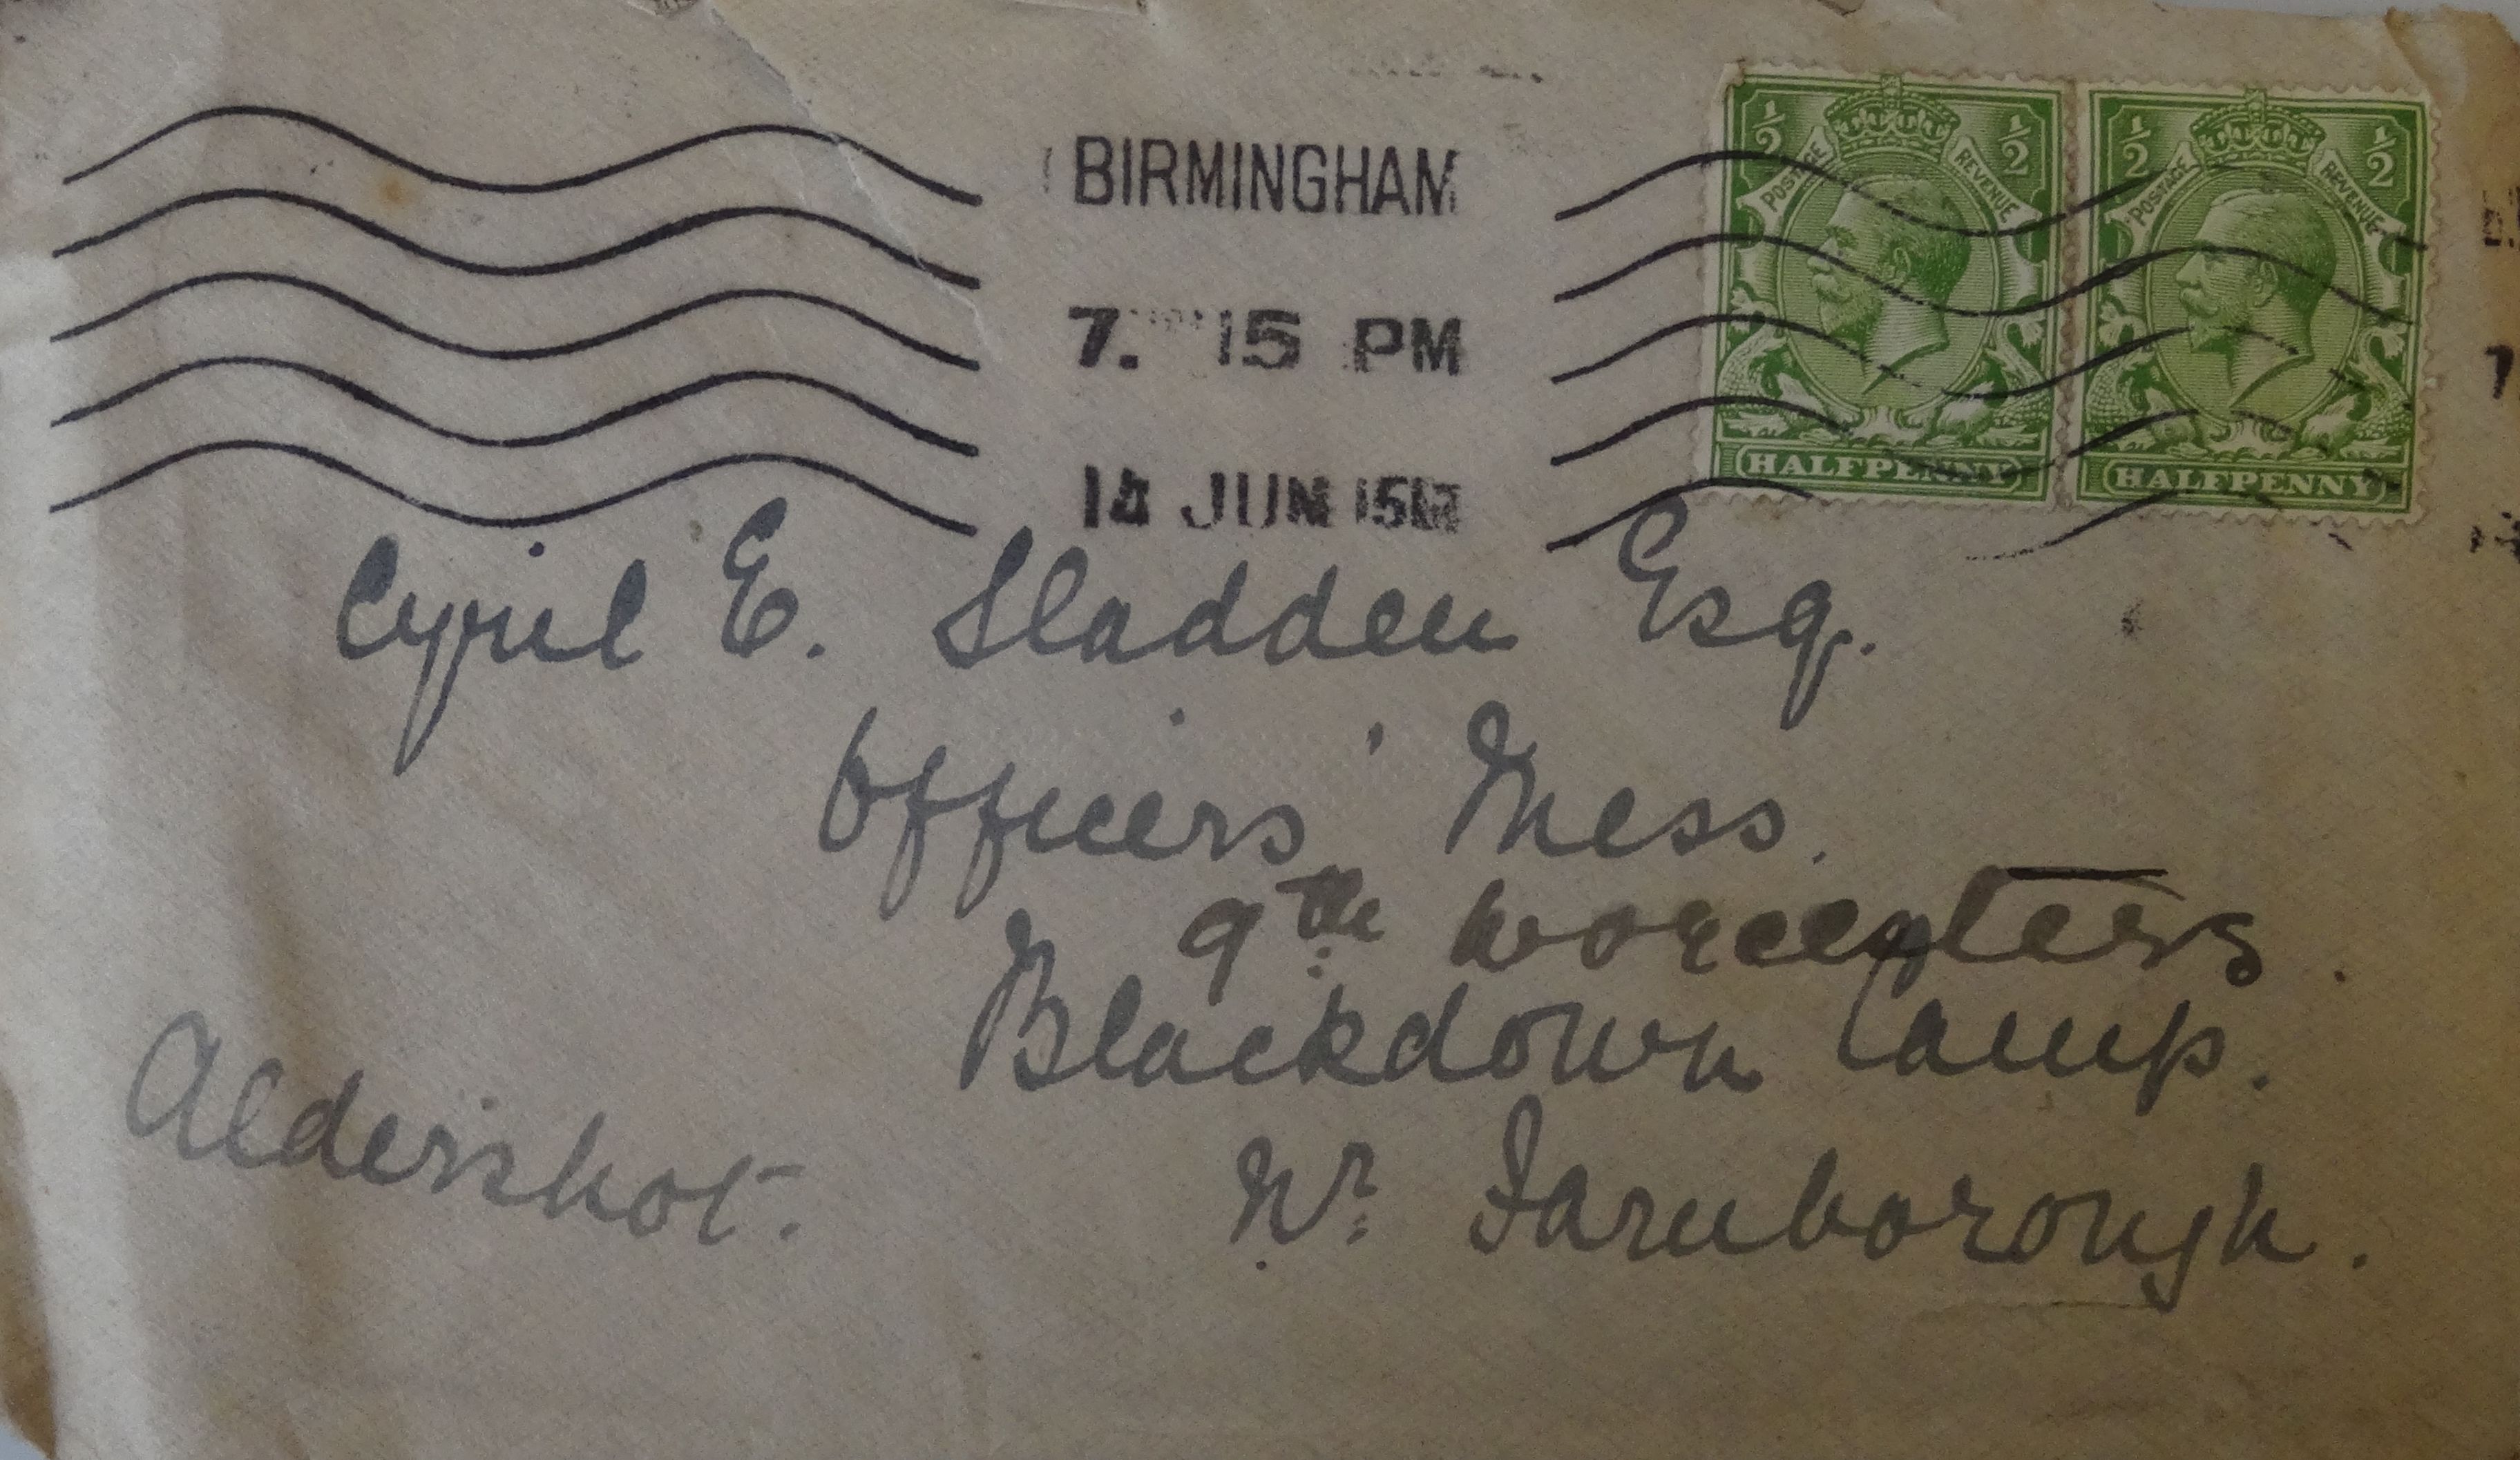 BIRMINGHAM
7. 15 PM
14 JUN 15
½ POSTAGE REVENUE ½
HALFPENNY
½ POSTAGE REVENUE ½
HALFPENNY
Cyril E. Sladden Esq.
Officers' Mess.
9th Worcesters.
Blackdown Camp.
Nr. Farnborough.
Aldershot.